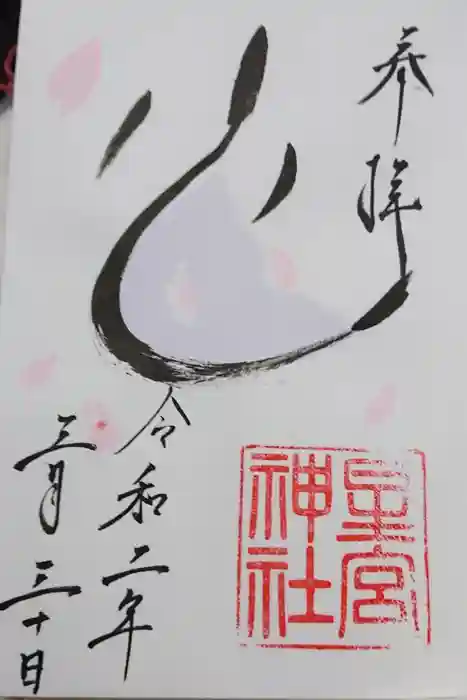 奉拝
心
令和二年
三月三十日
星宮
神社